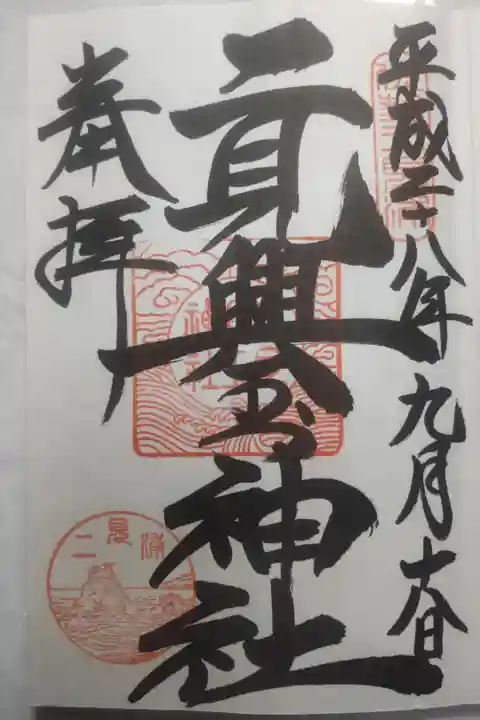 平成二十八年九月十八日
二見興玉神社
奉拝
二見浦